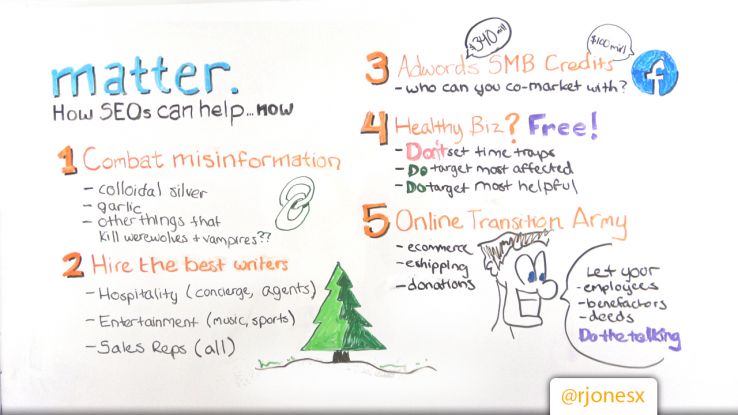 matter.
How SEOs can help...now
1 Combat misinformation
- colloidal silver
- garlic
- other things that
kill werewolves + vampires??
2 Hire the best writers
- Hospitality (concierge, agents)
- Entertainment (music, sports)
- Sales Reps (all)
$340 mill
$100 mill
3 Adwords SMB Credits
- who can you co-market with?
f
4 Healthy Biz? Free!
- Don't set time traps
- Do target most affected
- Do target most helpful
5 Online Transition Army
- ecommerce
- eshipping
- donations
Let your
- employees
- benefactors
- deeds
Do the talking
@rjonesx